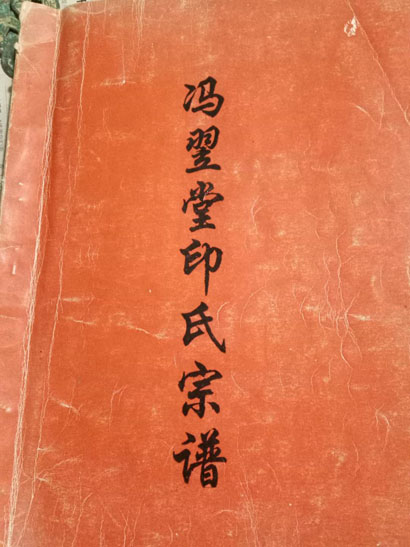 冯翌堂印氏宗谱